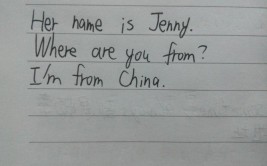 Her name is Jenny.
Where are you from?
I'm from China.